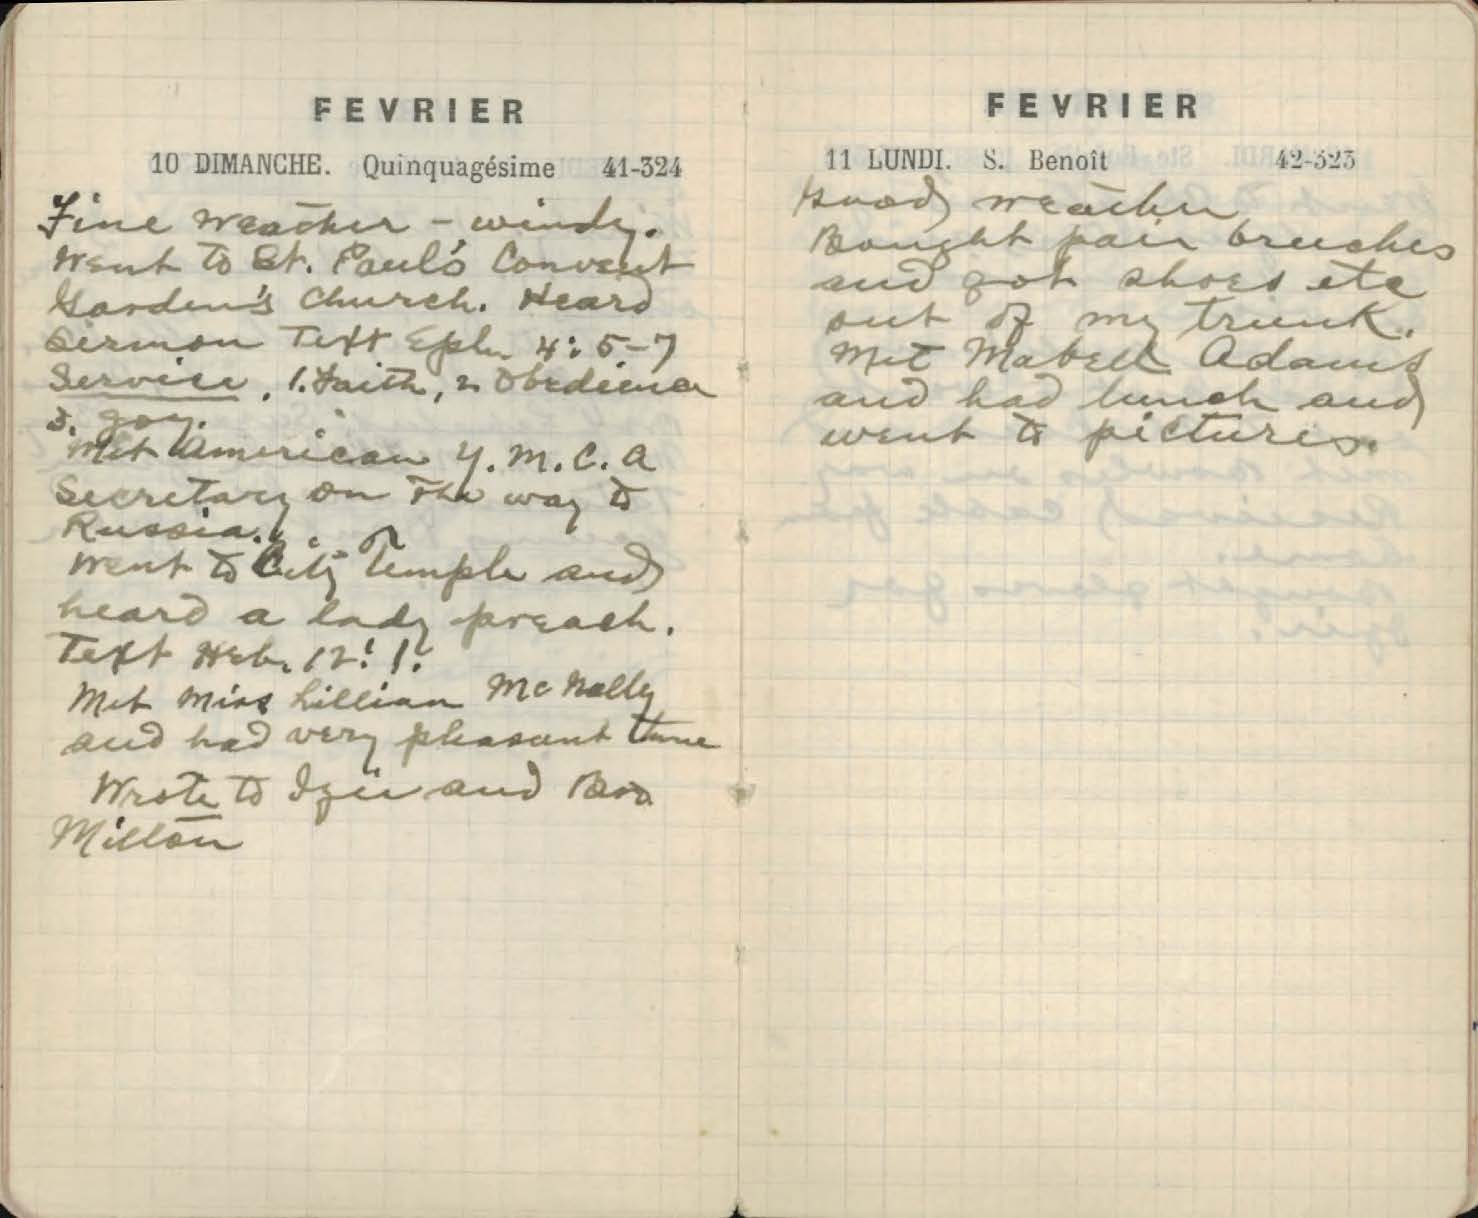 FEVRIER
10 DIMANCHE. Quinquagésime 41-324
Fine weather – windy.
Went to St. Paul's Convent
Garden's Church. Heard
Sermon Text Eph. 4:5-7
Service. 1. Faith, 2. Obedience
3. joy.
Met American Y.M.C.A
Secretary on the way to
Russia.
Went to City Temple and
heard a lady preach.
Text Heb. 12:1.
Met Miss Lillian McNally
and had very pleasant time
Wrote to and Bro
Milton
FEVRIER
11 LUNDI. S. Benoît 42-323
Good weather
Bought pair breeches
and got shoes etc
out of my trunk.
Met Mabell Adams
and had lunch and
went to pictures.